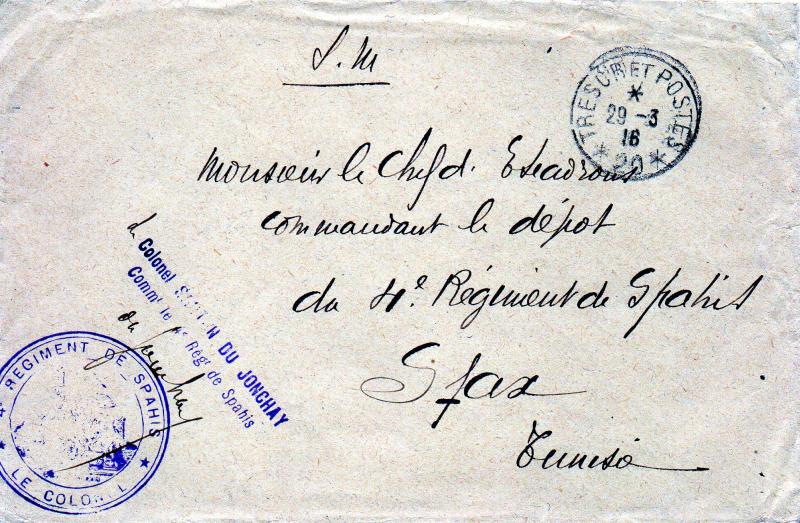 S. M
TRESOR ET POSTES
*
29 -3
16
* 20 *
Monsieur le Chef d' Escadrons
commandant le dépôt
du 4e Régiment de Spahis
Sfax
Tunisie
Le Colonel DU JONCHAY
Commt le 4e Régt de Spahis
du Jonchay
4e REGIMENT DE SPAHIS
* LE COLONEL *